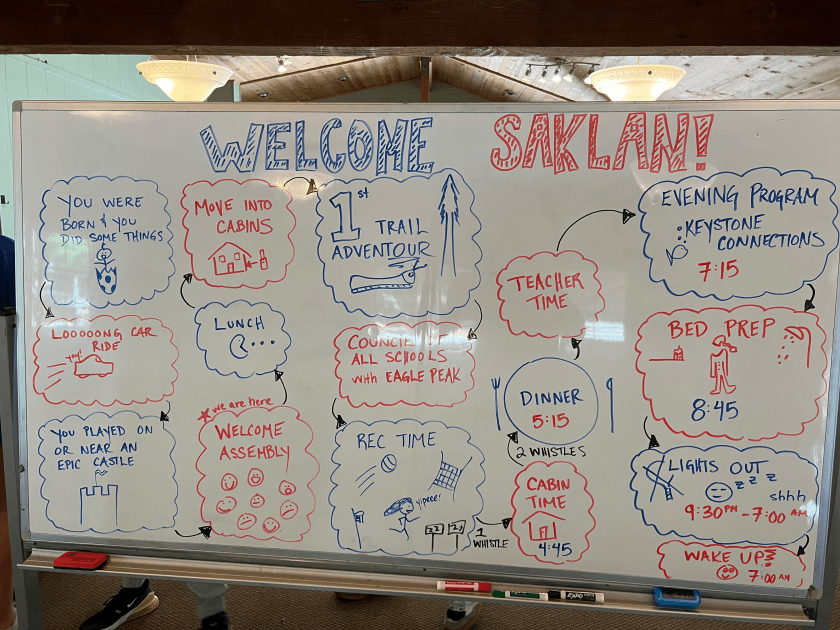 WELCOME SAKLAN!
YOU WERE
BORN & YOU
DID SOME THINGS
LOOOOONG CAR
RIDE
yay!
YOU PLAYED ON
OR NEAR AN
EPIC CASTLE
we are here
WELCOME
ASSEMBLY
LUNCH
MOVE INTO
CABINS
1st
TRAIL
ADVENTOUR
COUNCIL OF
ALL SCHOOLS
with EAGLE PEAK
REC TIME
Yipeee!
22 23
1
WHISTLE
CABIN
TIME
4:45
2 WHISTLES
DINNER
5:15
TEACHER
TIME
EVENING PROGRAM
KEYSTONE
CONNECTIONS
7:15
BED PREP
8:45
LIGHTS OUT
z z z z
shhh
9:30PM - 7:00 AM
WAKE UP!
7:00 AM
EXPO